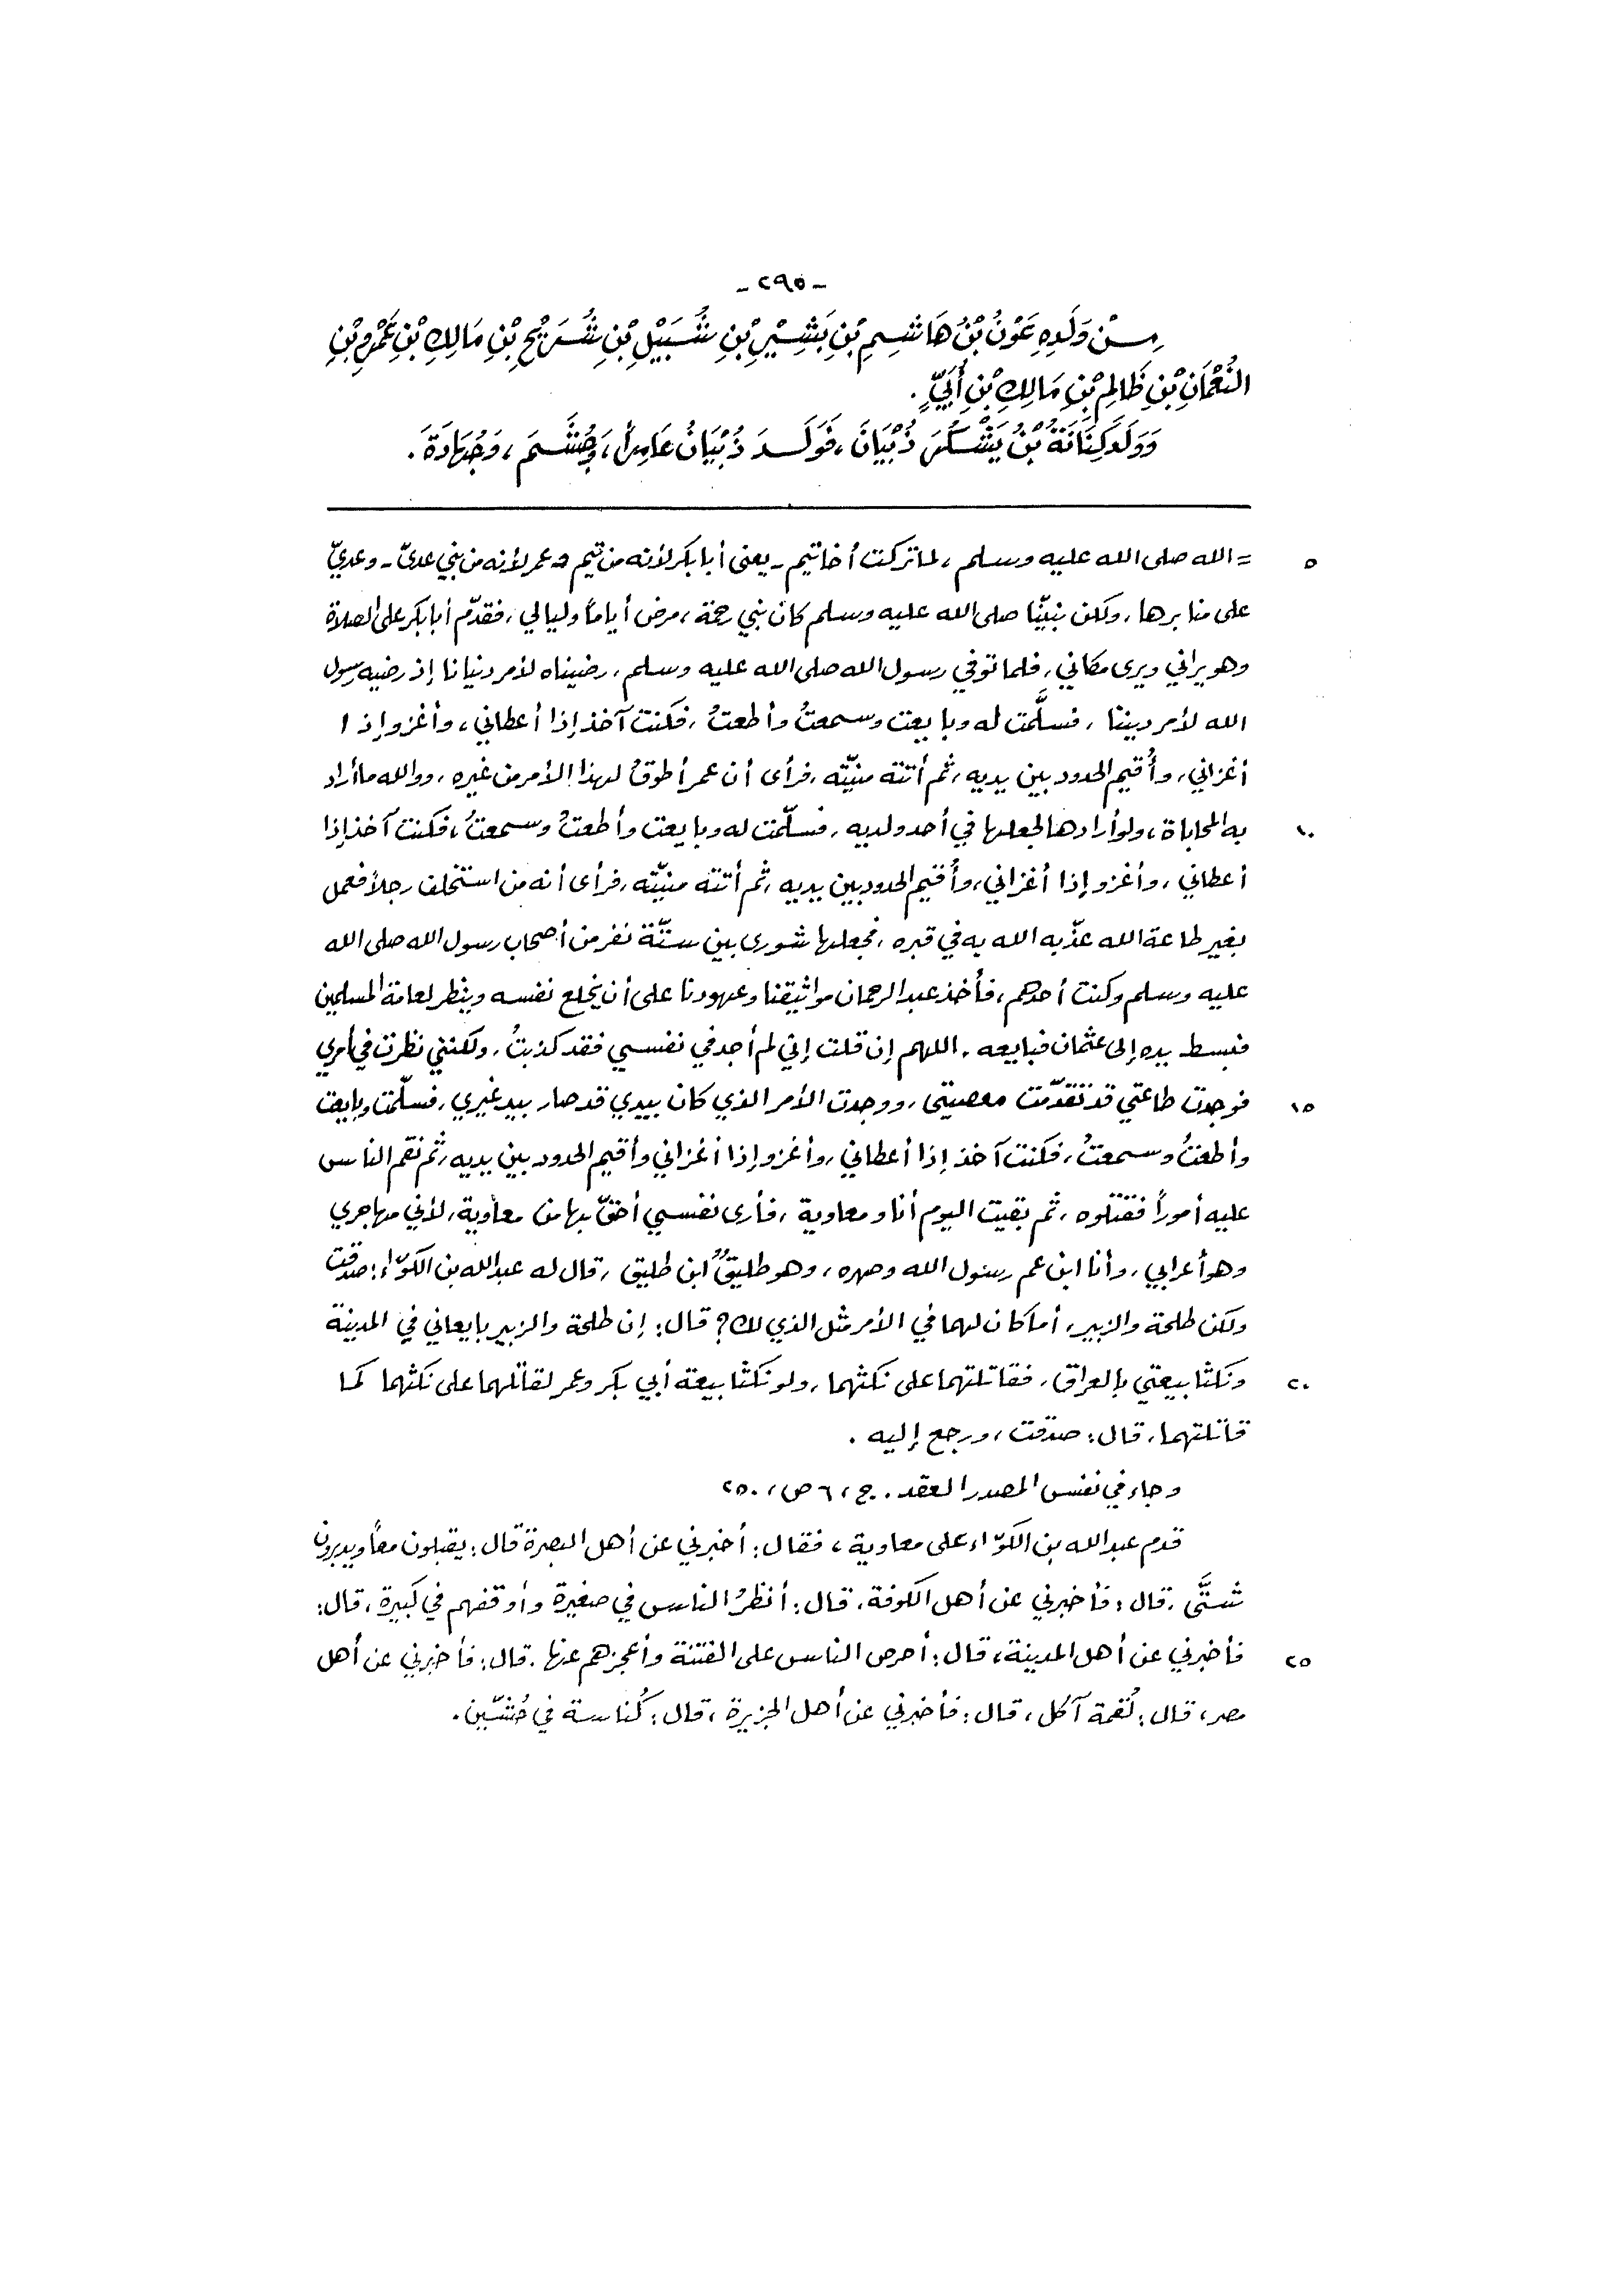 - ٢٩٥ -
مِنْ وَلَدِهِ عَوْنُ بْنُ هَاشِمِ بْنِ بَشِيْرِ بْنِ شُبَيْلِ بْنِ شُرَيْحِ بْنِ مَالِكِ بْنِ عَمْرِو بْنِ
النُّعْمَانِ بْنِ ظَالِمِ بْنِ مَالِكِ بْنِ أُبَيٍّ .
وَوَلَدَ كِنَانَةُ بْنُ يَشْكُرَ ذُبْيَانَ ، فَوَلَدَ ذُبْيَانُ عَامِراً ، وَجُشَمَ ، وَجُهَادَةَ .
٥ = الله صلى الله عليه وسلم ، لما تركت أخا تيم - يعني أبا بكر لأنه من تيم وعمر لأنه من بني عديّ - وعديّ
على منابرها ، ولكن نبيّنا صلى الله عليه وسلم كان نبي رحمة ، مرض أياماً وليالي ، فقدّم أبا بكر على الصلاة
وهو يراني ويرى مكاني ، فلما توفي رسول الله صلى الله عليه وسلم ، رضيناه لأمر دنيانا إذ رضيه رسول
الله لأمر ديننا ، فسلَّمت له وبايعت وسمعتُ وأطعتُ ، فكنت آخذ إذا أعطاني ، وأغزو إذا
أغزاني ، وأُقيم الحدود بين يديه ، ثم أتته منيّته ، فرأى أن عمر أطوقُ لهذا الأمر من غيره ، ووالله ما أراد
١٠ به المحاباة ، ولو أرادها لجعلها في أحد ولديه ، فسلّمت له وبايعت وأطعتُ وسمعتُ ، فكنت آخذ إذا
أعطاني ، وأغزو إذا أغزاني ، وأُقيم الحدود بين يديه ، ثم أتته منيّته ، فرأى أنه من استخلف رجلاً فعمل
بغير طاعة الله عذّبه الله به في قبره ، فجعلها شورى بين ستّة نفر من أصحاب رسول الله صلى الله
عليه وسلم وكنت أحدهم ، فأخذ عبد الرحمان مواثيقنا وعهودنا على أن يخلع نفسه وينظر لعامة المسلمين
فبسط يده إلى عثمان فبايعه . اللهم إن قلت إني لم أجد في نفسي فقد كذبتُ ، ولكنني نظرت في أمري
١٥ فوجدت طاعتي قد تقدّمت معصيتي ، ووجدت الأمر الذي كان بيدي قد صار بيد غيري ، فسلّمت وبايعت
وأطعتُ وسمعتُ ، فكنت آخذ إذا أعطاني ، وأغزو إذا أغزاني وأقيم الحدود بين يديه ، ثم نقم الناس
عليه أموراً فقتلوه ، ثم بقيت اليوم أنا ومعاوية ، فأرى نفسي أحقّ بها من معاوية ، لأني مهاجري
وهو أعرابي ، وأنا ابن عم رسول الله وصهره ، وهو طليقٌ ابن طليق ، قال له عبد الله بن الكوّاء : صدقت
ولكن طلحة والزبير ، أما كان لهما في الأمر مثل الذي لك ؟ قال : إن طلحة والزبير بايعاني في المدينة
٢٠ ونكثا بيعتي بالعراق ، فقاتلتهما على نكثهما ، ولو نكثا بيعة أبي بكر وعمر لقاتلهما على نكثهما كما
قاتلتهما ، قال : صدقت ، ورجع إليه .
وجاء في نفس المصدر العقد . ج ، ٦ ص ، ٢٥٠
قدم عبد الله بن الكوّاء على معاوية ، فقال : أخبرني عن أهل البصرة قال : يقبلون معاً ويدبرون
شتَّى . قال : فأخبرني عن أهل الكوفة ، قال : أنظرُ الناس في صغيرة وأوقفهم في كبيرة ، قال :
٢٥ فأخبرني عن أهل المدينة ، قال : أحرص الناس على الفتنة وأعجزهم عنها . قال : فأخبرني عن أهل
مصر ، قال : لُقمة آكل ، قال : فأخبرني عن أهل الجزيرة ، قال : كُناسة في حُشّين .